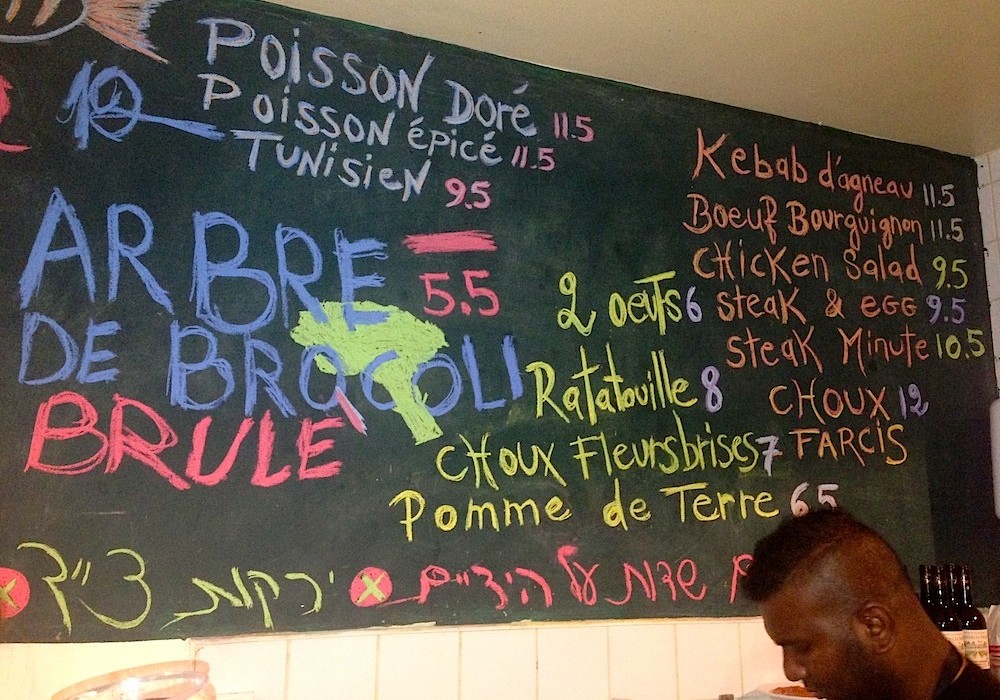 POISSON DORÉ 11.5
POISSON épicé 11.5
TUNISIEN 9.5
ARBRE 5.5
DE BROCOLI
BRULÉ
Kebab d'agneau 11.5
Boeuf Bourguignon 11.5
CHicKen Salad 9.5
2 oeufs 6
steak & egg 9.5
steak Minute 10.5
Ratatouille 8
CHOUX 12
FARCIS
CHoux Fleurs brises 7
Pomme de Terre 6.5
ירקות צ״ך
שדות על הידיים